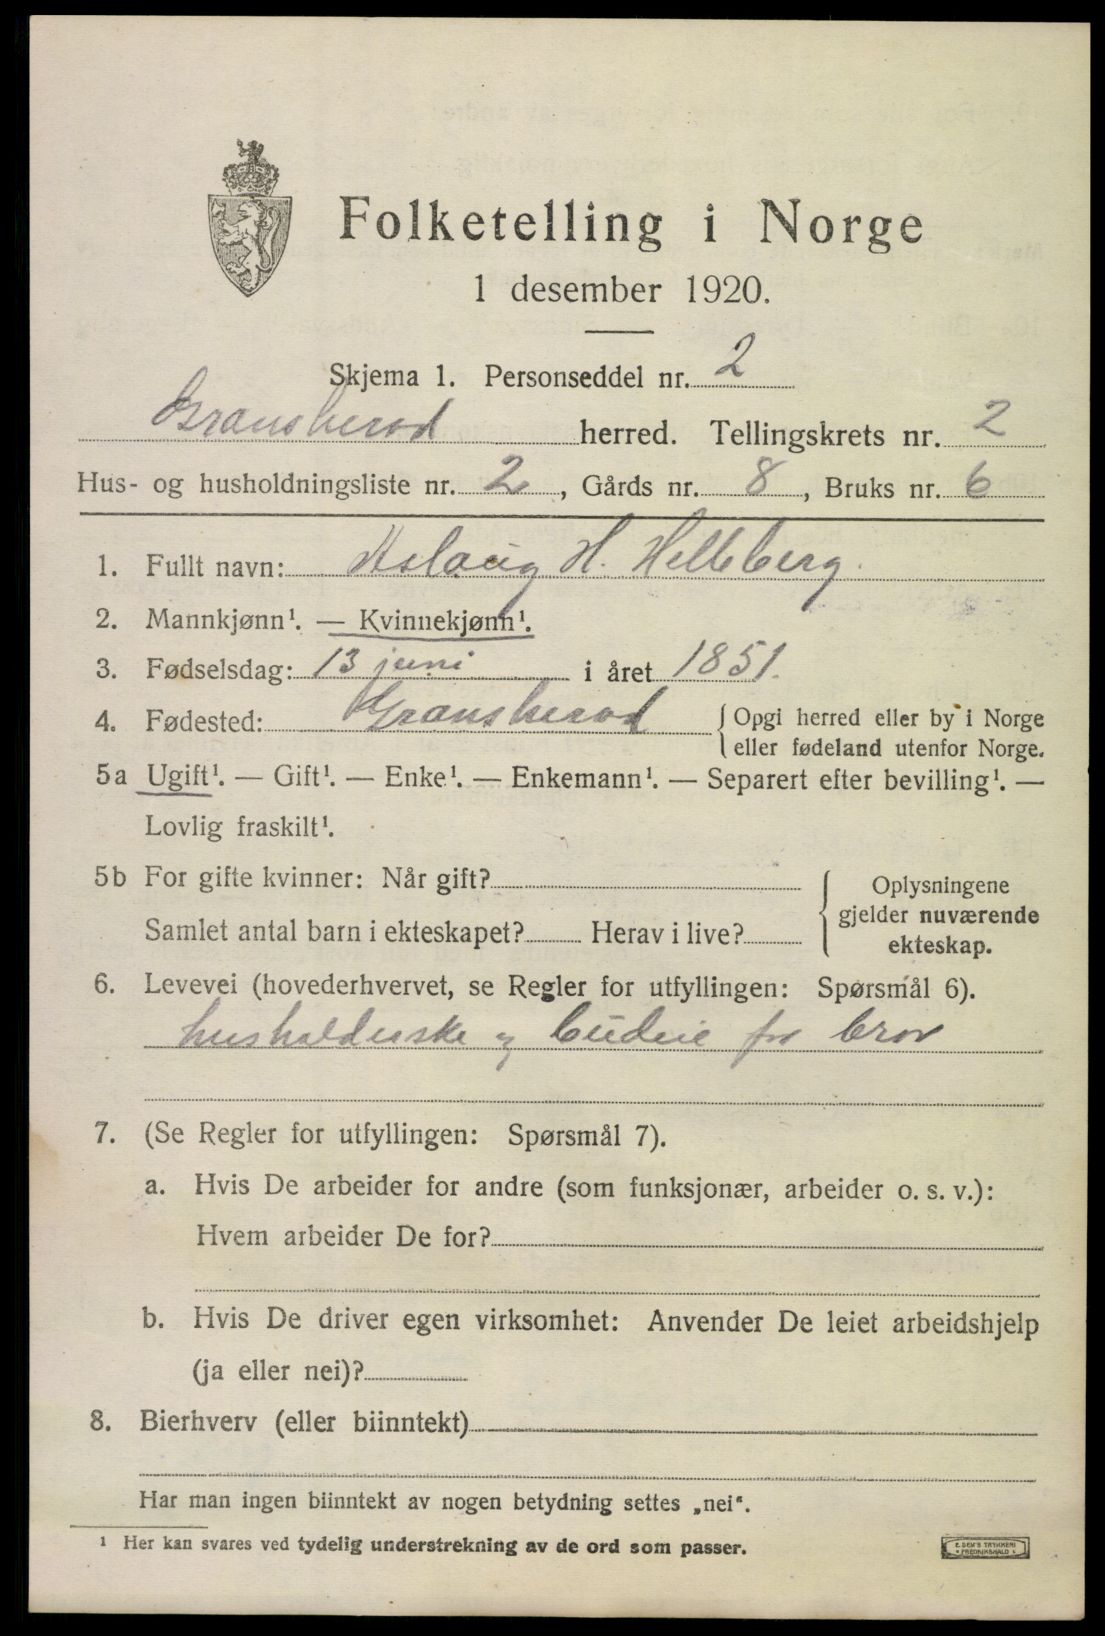 Folketelling i Norge
1 desember 1920.
Skjema 1. Personseddel nr. 2
Gransherad herred. Tellingskrets nr. 2
Hus- og husholdningsliste nr. 2, Gårds nr. 8, Bruks nr. 6
1. Fullt navn: Aslaug H. Helleberg.
2. Mannkjønn¹. — Kvinnekjønn¹.
3. Fødselsdag: 13 juni i året 1851.
4. Fødested: Gransherad {Opgi herred eller by i Norge
eller fødeland utenfor Norge.
5a Ugift¹. — Gift¹. — Enke¹. — Enkemann¹. — Separert efter bevilling¹. —
Lovlig fraskilt¹.
5b For gifte kvinner: Når gift?
Samlet antal barn i ekteskapet? Herav i live?
{Oplysningene
gjelder nuværende
ekteskap.
6. Levevei (hovederhvervet, se Regler for utfyllingen: Spørsmål 6).
husholderske og budeie for bror
7. (Se Regler for utfyllingen: Spørsmål 7).
a. Hvis De arbeider for andre (som funksjonær, arbeider o. s. v.):
Hvem arbeider De for?
b. Hvis De driver egen virksomhet: Anvender De leiet arbeidshjelp
(ja eller nei)?
8. Bierhverv (eller biinntekt)
Har man ingen biinntekt av nogen betydning settes „nei“.
¹ Her kan svares ved tydelig understrekning av de ord som passer.
E. SEM'S TRYKKERI
FREDRIKSHALD